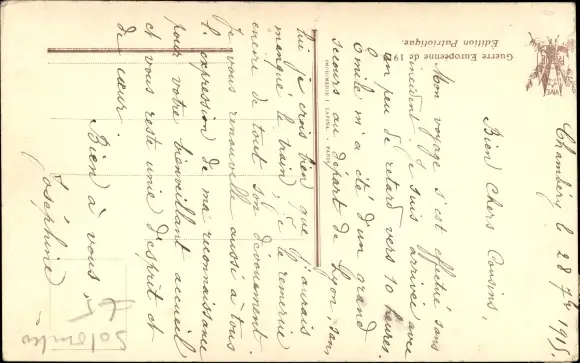 Chambéry le 28 7bre 1915.
Bien Chers Cousins,
Mon voyage s'est effectué sans
incident. Je suis arrivée avec
un peu de retard vers 10 heures.
Emile m'a été d'un grand
secours au départ de Lyon, sans
lui je crois bien que j'aurais
manqué le train; Je le remercie
encore de tout son dévouement.
Je vous renouvelle aussi à tous
l'expression de ma reconnaissance
pour votre bienveillant accueil
et vous reste unie d'esprit et
de cœur.
Bien à vous
Joséphine
Guerre Européenne de 19
Édition Patriotique.
IMPRIMERIE I. LAPINA. - PARIS